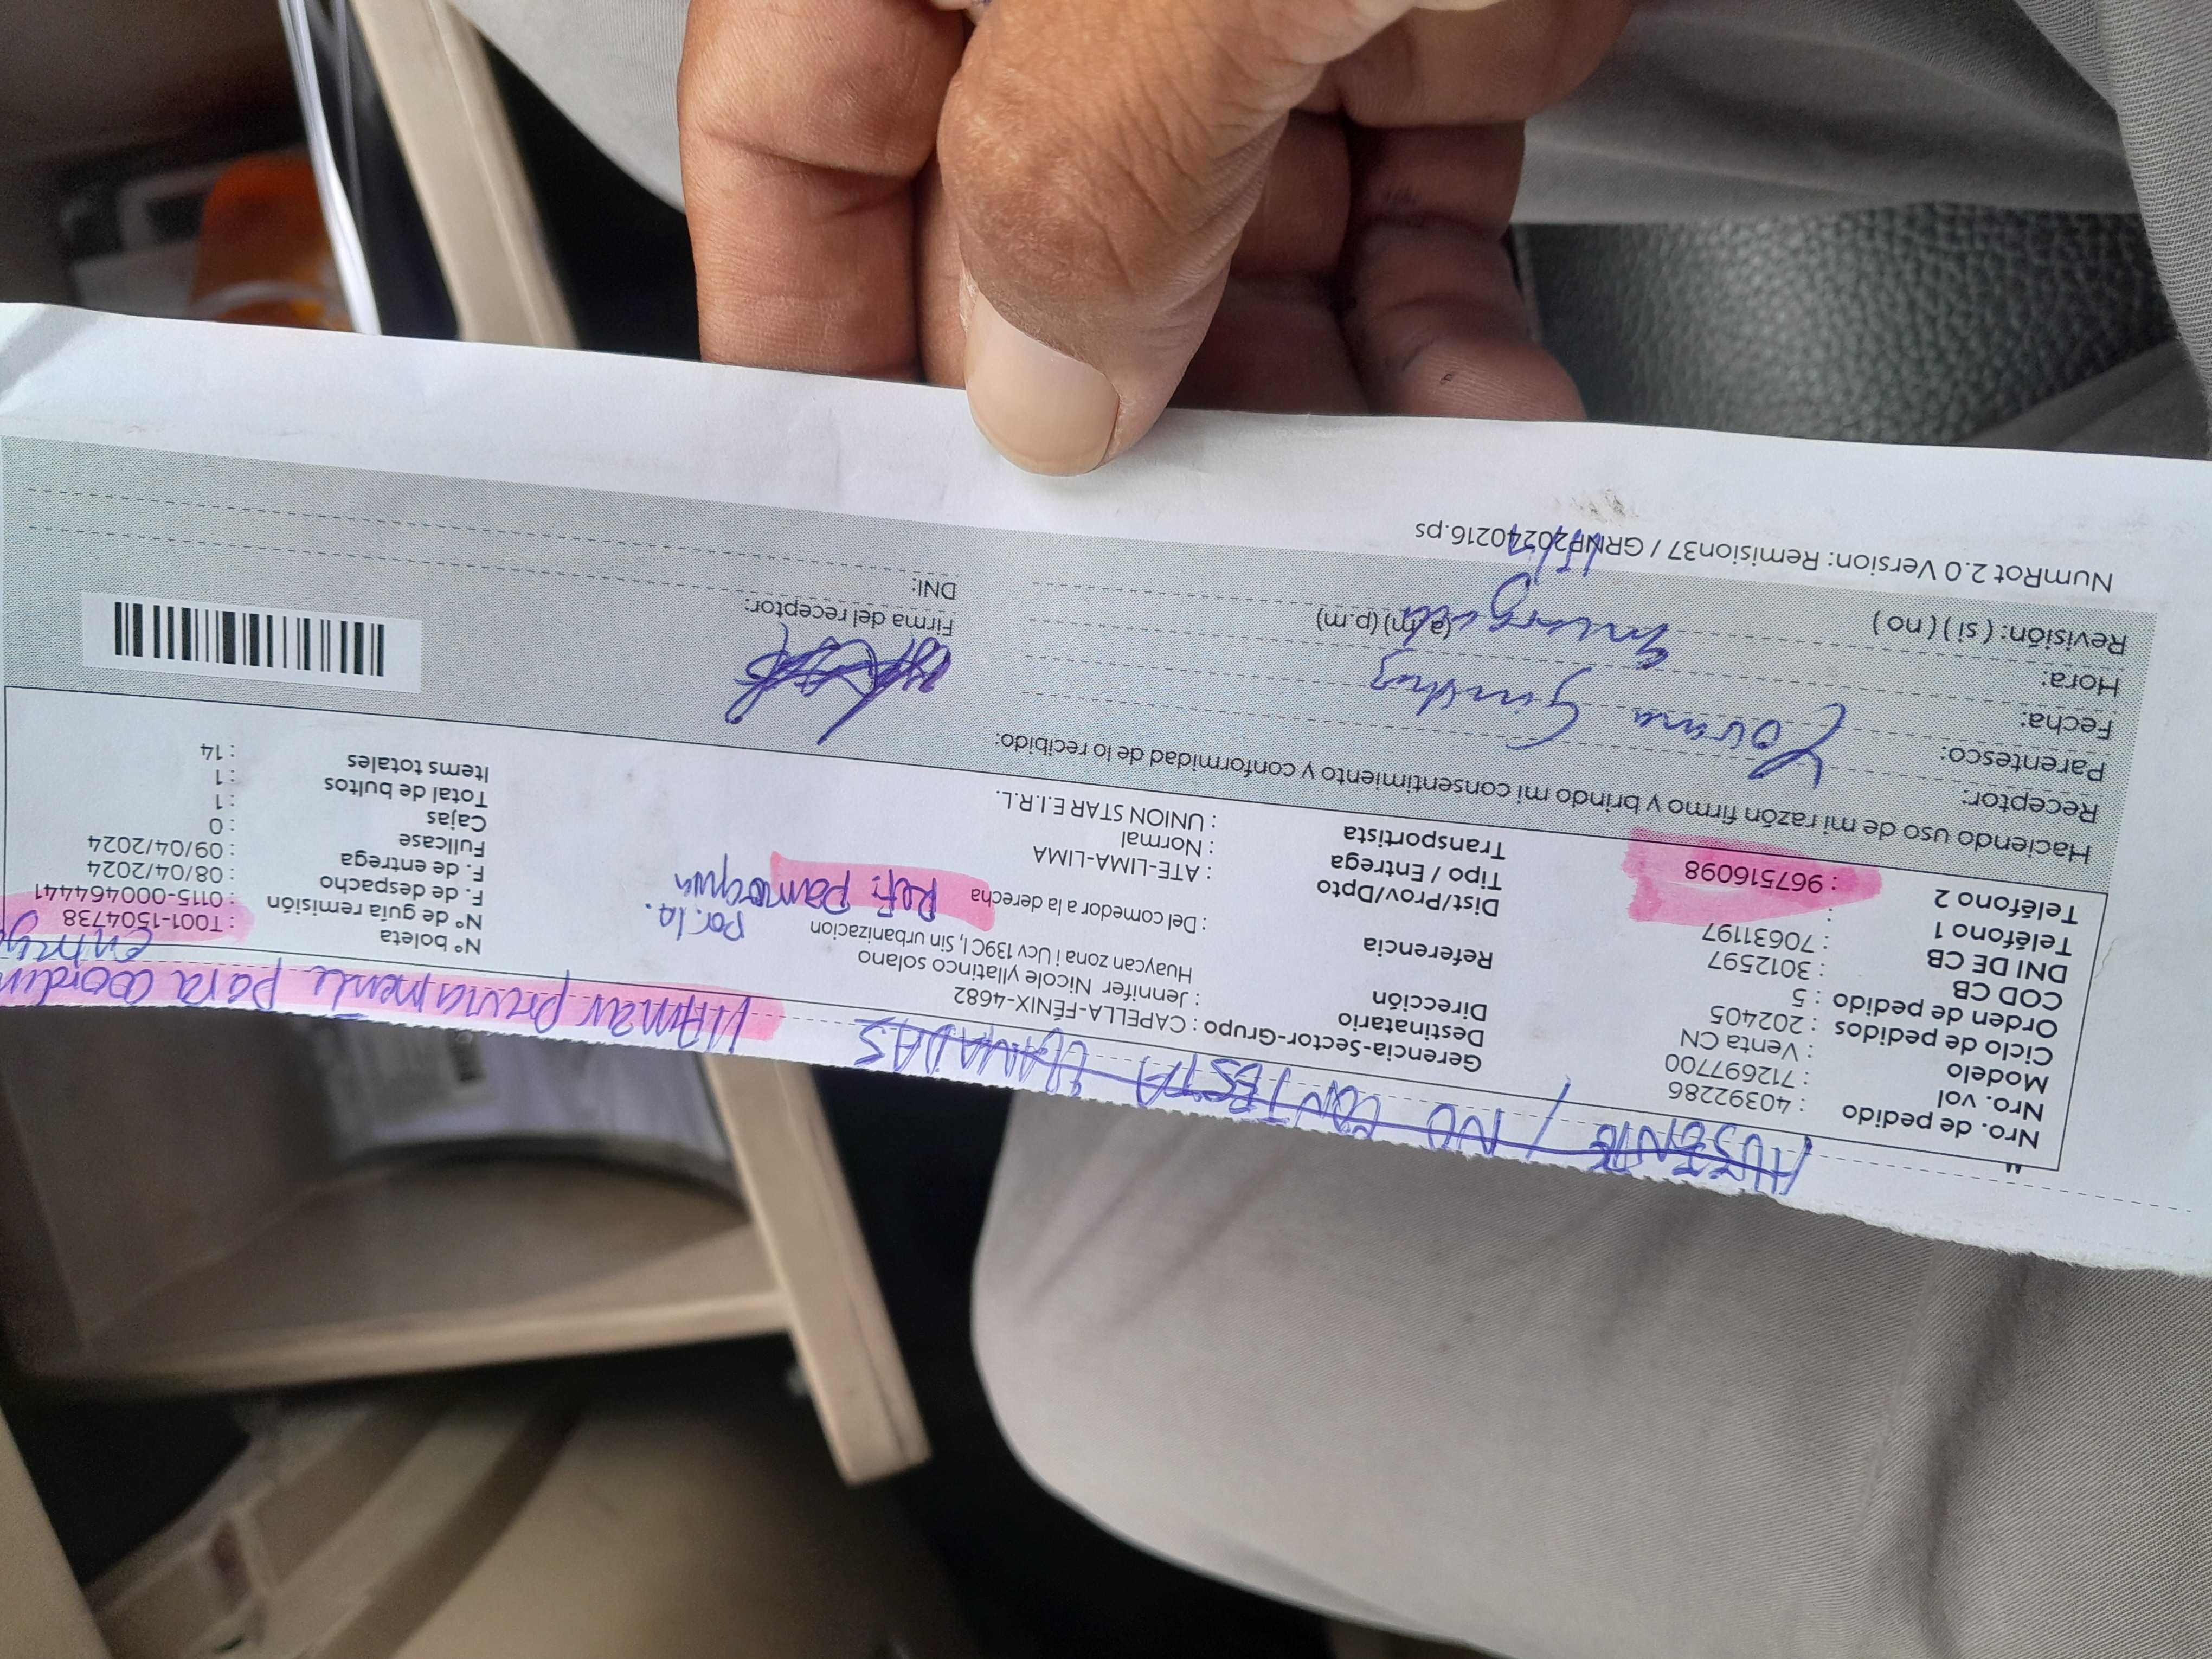 AUSENTE / NO CONTESTA LLAMADAS
LLAMAR previamente para coordin
entrega
Nro. de pedido : 40392286
Nro. vol : 712697700
Modelo : Venta CN
Ciclo de pedidos : 202405
Orden de pedido : 5
COD CB : 3012597
DNI DE CB : 70631197
Teléfono 1 :
Teléfono 2 : 967516098
Gerencia-Sector-Grupo : CAPELLA-FÉNIX-4682
Destinatario : Jennifer Nicole yllatinco solano
Dirección Huaycan zona i Ucv 139C l, Sin urbanizacion
Referencia : Del comedor a la derecha
Ref: Paramoquia
Por. la.
Dist/Prov/Dpto : ATE-LIMA-LIMA
Tipo / Entrega : Normal
Transportista : UNION STAR E.I.R.L.
N° boleta : T001-1504738
N° de guía remisión : 0115-000464441
F. de despacho : 08/04/2024
F. de entrega : 09/04/2024
Fullcase : 0
Cajas : 1
Total de bultos : 1
Items totales : 14
Haciendo uso de mi razón firmo y brindo mi consentimiento y conformidad de lo recibido:
Receptor:
Parentesco:
Fecha:
Hora: (a.m) (p.m)
Revisión: ( si ) ( no )
Firma del receptor:
DNI:
NumRot 2.0 Version: Remision37 / GRNP20240216.ps